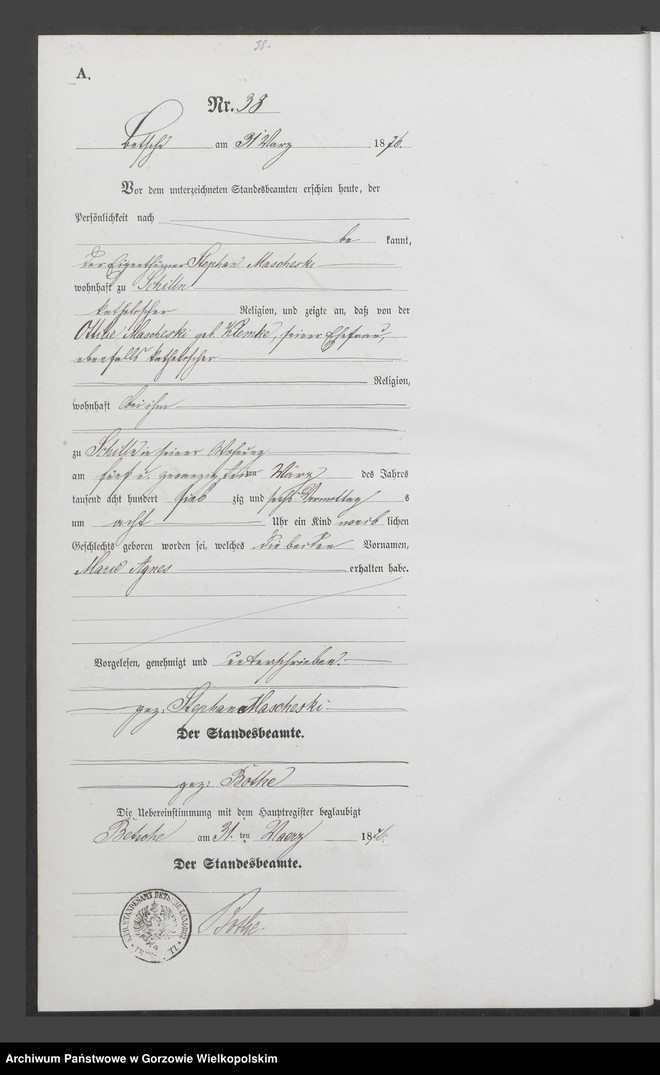 38.
A.
Nr. 38
Betsche am 31 März 1876.
Vor dem unterzeichneten Standesbeamten erschien heute, der
Persönlichkeit nach
be kannt,
der Eigenthümer Stephan Mascheski
wohnhaft zu Schilln
katholischer Religion, und zeigte an, daß von der
Ottilie Mascheski geb. Klemke, seiner Ehefrau,
ebenfalls katholischer
Religion,
wohnhaft bei ihm
zu Schilln in seiner Wohnung
am fünf u. zwanzigsten März des Jahres
tausend acht hundert sieb zig und sechs Vormittag s
um acht Uhr ein Kind weib lichen
Geschlechts geboren worden sei, welches die beiden Vornamen,
Marie Agnes erhalten habe.
Vorgelesen, genehmigt und unterschrieben.
gez: Stephan Mascheski
Der Standesbeamte.
gez: Bothe
Die Uebereinstimmung mit dem Hauptregister beglaubigt
Betsche am 31. ten Maerz 1876.
Der Standesbeamte.
Bothe.
STANDESAMT
Archiwum Państwowe w Gorzowie Wielkopolskim